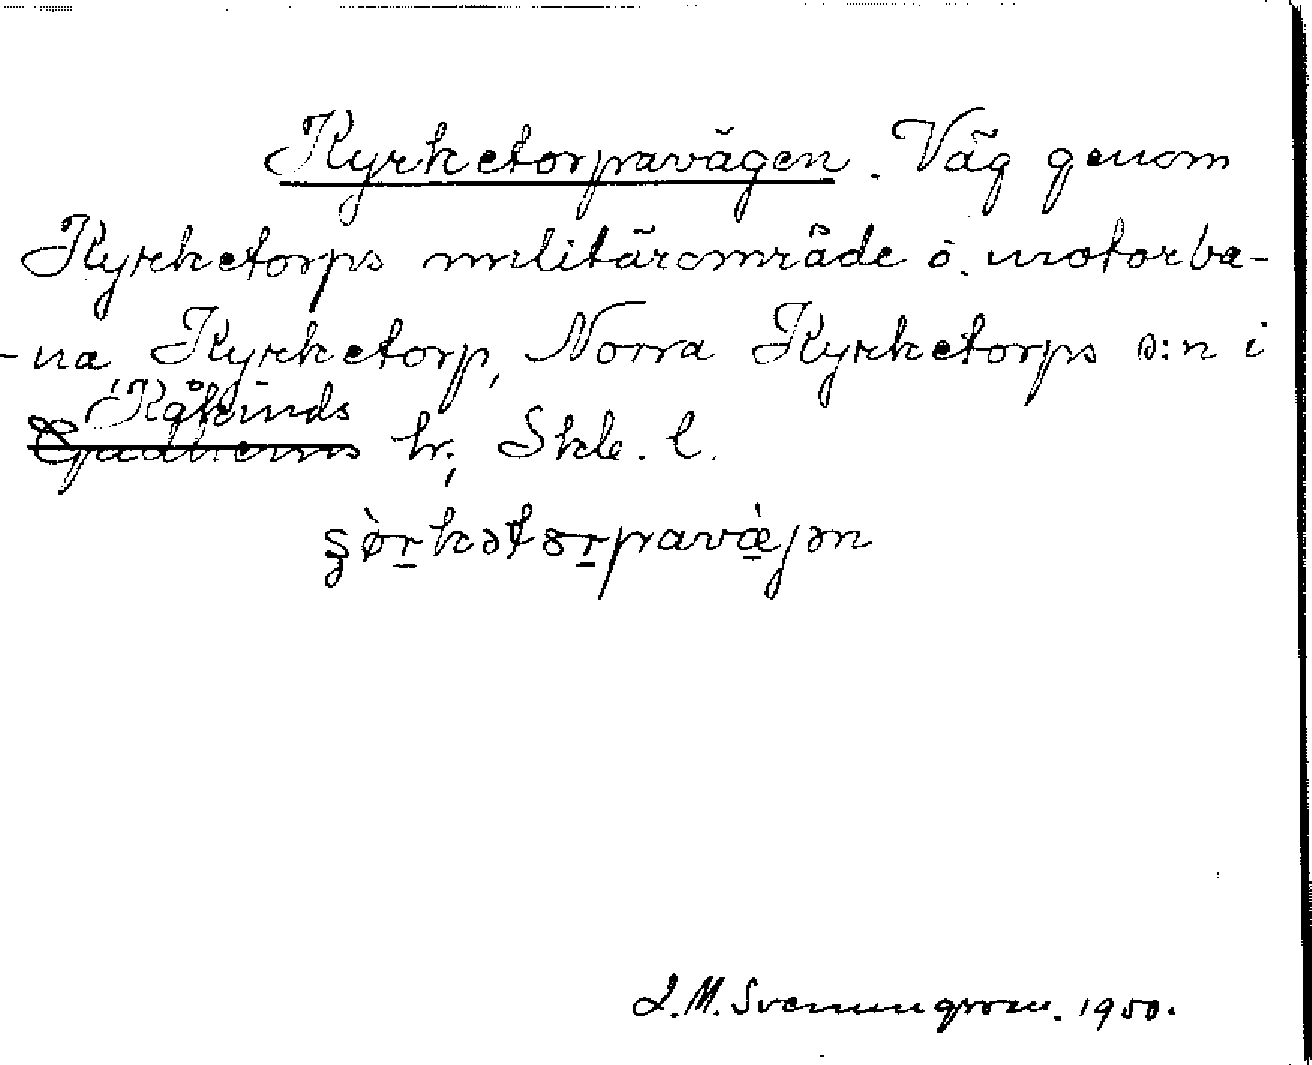 Kyrketorpavägen. Väg genom
Kyrketorps militärområde o. motorba-
-na Kyrketorp, Norra Kyrketorps s:n i
Kåkinds
Gudhems hr, Skb. l.
ʂø̀r̠kətɔr̠pavæ̀jən